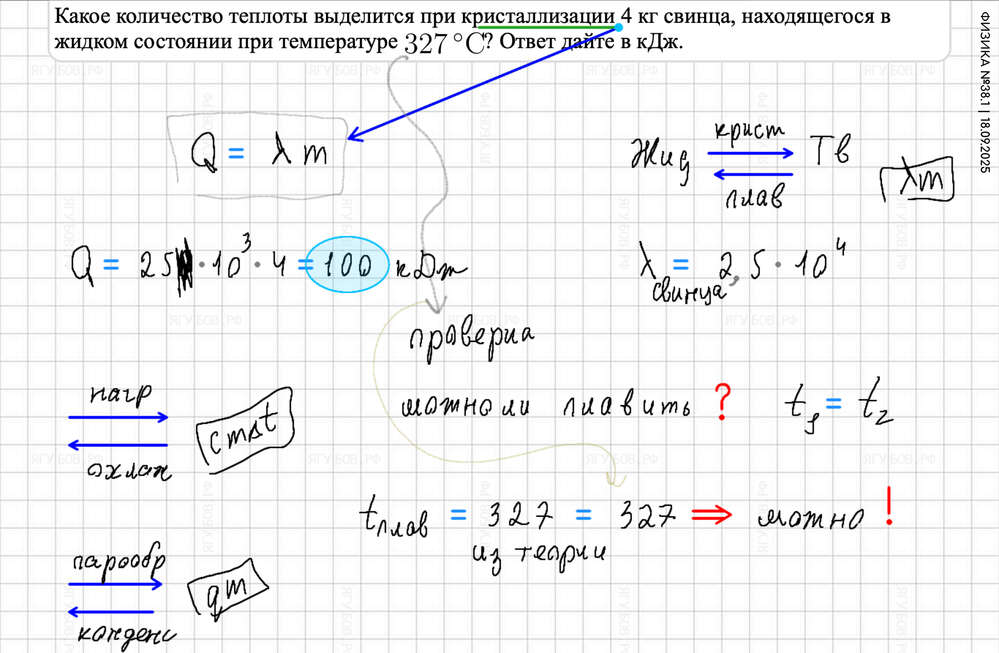 Какое количество теплоты выделится при кристаллизации 4 кг свинца, находящегося в
жидком состоянии при температуре 327 °C? Ответ дайте в кДж.
ФИЗИКА №38.1 | 18.09.2025
Q = λm
Жид крист Тв
плав
λm
Q = 25 · 10³ · 4 = 100 кДж
λ свинца = 2,5 · 10⁴
проверка
нагр
охлаж
cmΔt
можно ли плавить ? t₁ = t₂
tплав = 327 = 327 ⇒ можно !
из теории
парообр
конденс
qm
ЯГУБОВ.РФ